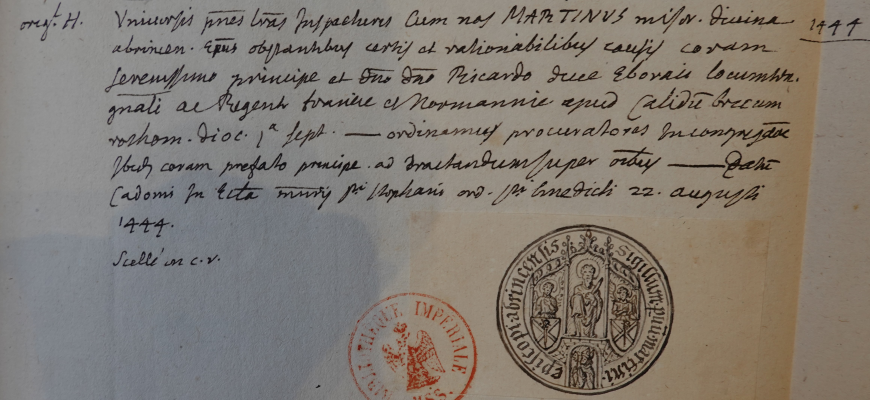 origl H.
Vniversis pntes lras Inspecturis Cum nos MARTINUS miser. divina
abrincen. Epus obstantibus certis et rationabilibus causis coram
serenissimo principe et dno dno Ricardo duce Eboraci locumten.
gnali ac Regent franciae et Normannie apud Calidu beccum
rothom. dioc. 1a sept. — ordinamus procuratores In congregaoe
Ibid coram prefato principe. ad tractandum super orbus — Datu
Cadomi In Eccla mrii sti stephani ord. sti benedicti 22. augusti
1444.
Scellé en c.v.
1444
sigillum martini
episcopi abrincensis
BIBLIOTHEQUE IMPERIALE
MSS.